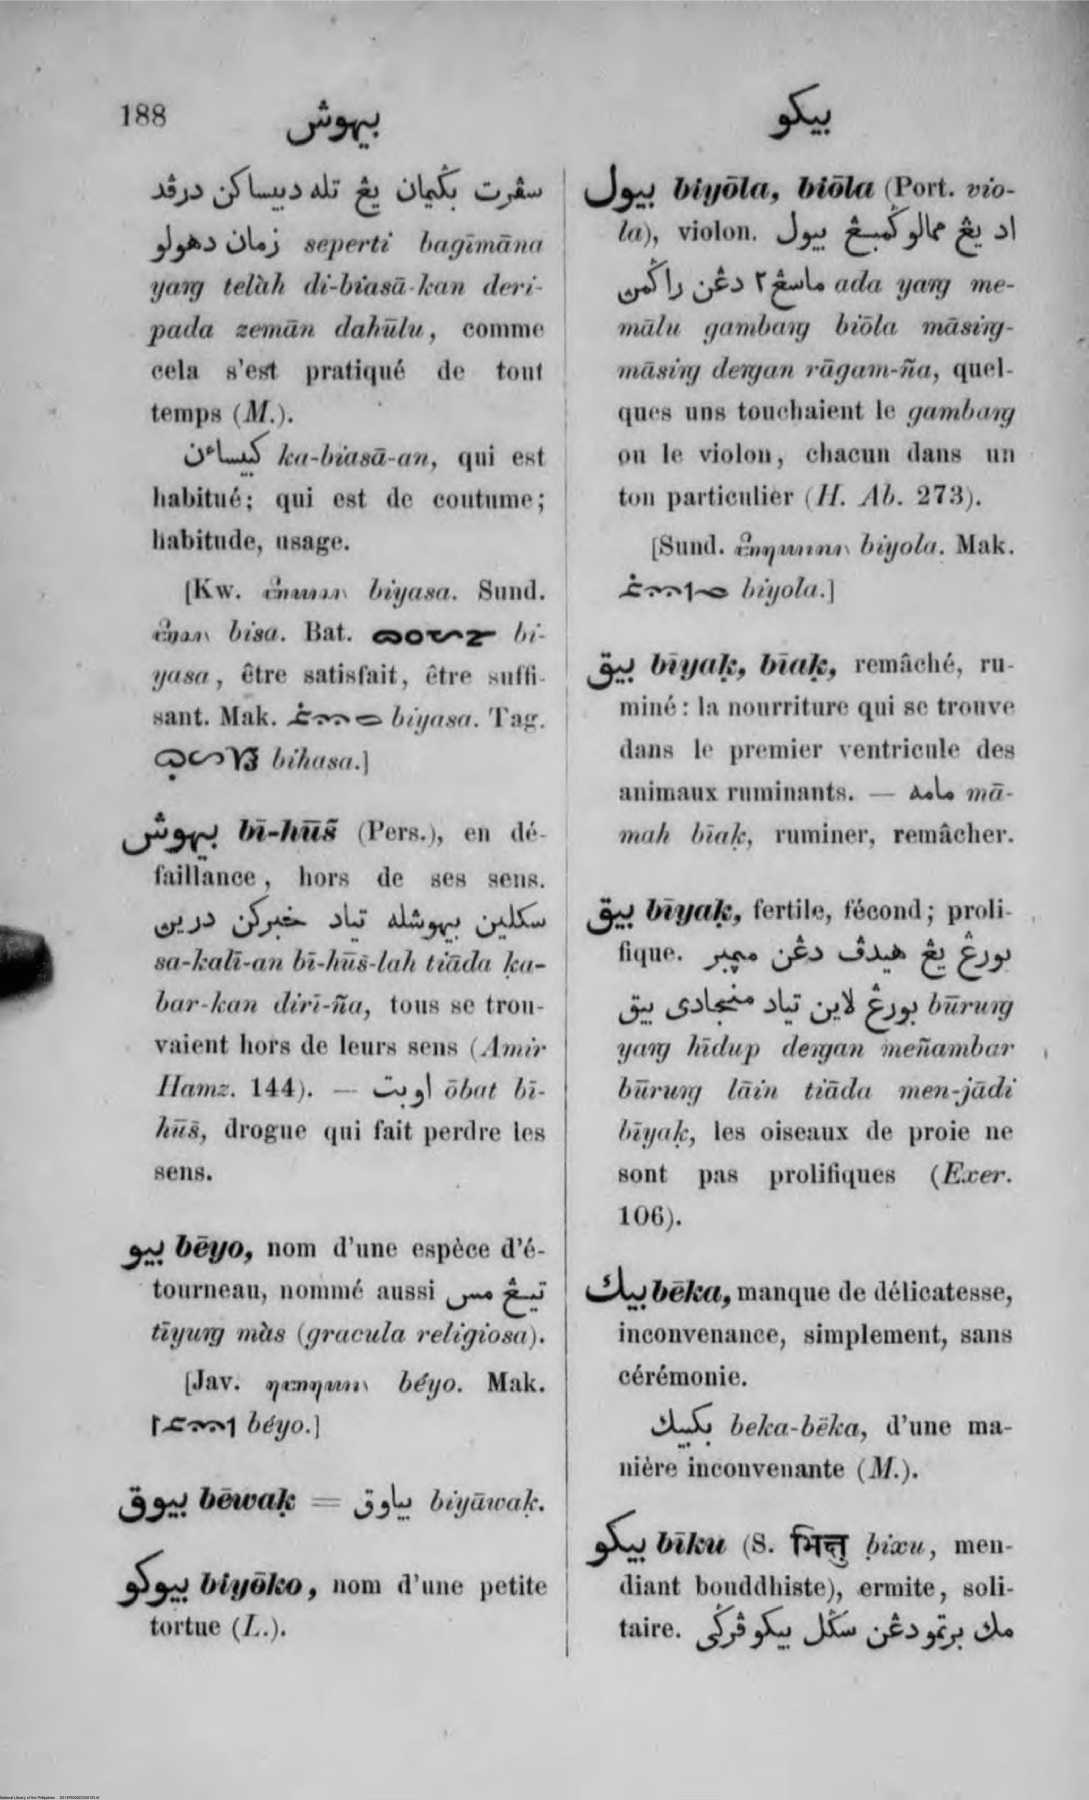 188
بيهوش
بيكو
سڤرت بڬيمان يڠ تله دبيساكن درڤد
زمان دهولو seperti bagīmāna
yaṅg telàh di-biasā-kan deri-
pada zemān dahūlu, comme
cela s'est pratiqué de tout
temps (M.).
ka-biasā-an, qui est
habitué; qui est de coutume;
habitude, usage.
[Kw. biyasa. Sund.
bisa. Bat. bi-
yasa, être satisfait, être suffi-
sant. Mak. biyasa. Tag.
bihasa.]
بيهوش bī-hūš (Pers.), en dé-
faillance, hors de ses sens.
سكلين بيهوشله تياد خبركن درين
sa-kalī-an bī-hūš-lah tiāda ḳa-
bar-kan dirī-ña, tous se trou-
vaient hors de leurs sens (Amir
Hamz. 144). — اوبت ōbat bī-
hūš, drogue qui fait perdre les
sens.
بيو bēyo, nom d'une espèce d'é-
tourneau, nommé aussi تيڠ مس
tīyuṅg màs (gracula religiosa).
[Jav. béyo. Mak.
béyo.]
بيوق bēwaḳ = بياوق biyāwaḳ.
بيوكو biyōko, nom d'une petite
tortue (L.).
بيول biyōla, biōla (Port. vio-
la), violon. اد يڠ ممالو ڬمبڠ بيول
ماسڠ ٢ دڠن راڬمن ada yaṅg me-
mālu gambaṅg biōla māsiṅg-
māsiṅg deṅgan rāgam-ña, quel-
ques uns touchaient le gambaṅg
ou le violon, chacun dans un
ton particulier (H. Ab. 273).
[Sund. biyola. Mak.
biyola.]
بيق bīyaḳ, bīaḳ, remâché, ru-
miné: la nourriture qui se trouve
dans le premier ventricule des
animaux ruminants. — مامه mā-
mah bīaḳ, ruminer, remâcher.
بيق bīyaḳ, fertile, fécond; proli-
fique. بورڠ يڠ هيدڤ دڠن مڽمبر
بورڠ لاين تياد منجادي بيق būruṅg
yaṅg hīdup deṅgan meñambar
būruṅg lāin tiāda men-jādi
bīyaḳ, les oiseaux de proie ne
sont pas prolifiques (Exer.
106).
بيك bēka, manque de délicatesse,
inconvenance, simplement, sans
cérémonie.
بكبيك beka-bēka, d'une ma-
nière inconvenante (M.).
بيكو bīku (S. भिक्षु ḅixu, men-
diant bouddhiste), ermite, soli-
taire. مك برتمو دڠن سڬل بيكو ڤرڬي